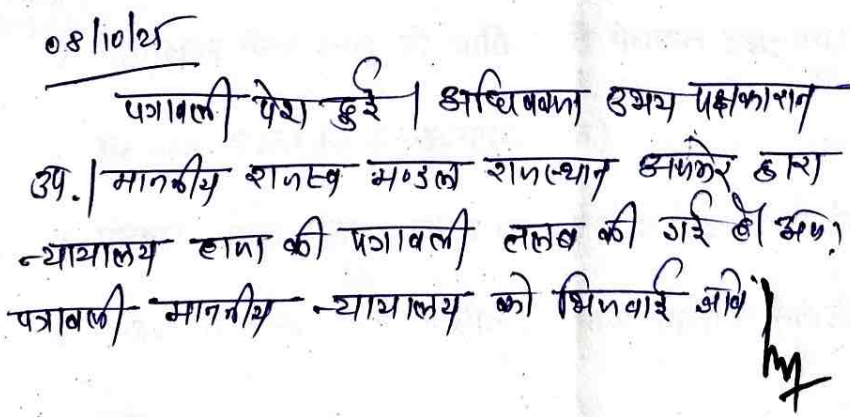 08/10/25
पत्रावली पेश हुई। अधिवक्ता उभय पक्षकारान
उप.। माननीय राजस्व मण्डल राजस्थान अजमेर द्वारा
न्यायालय हाजा की पत्रावली तलब की गई है। अतः
पत्रावली माननीय न्यायालय को भिजवाई जावे